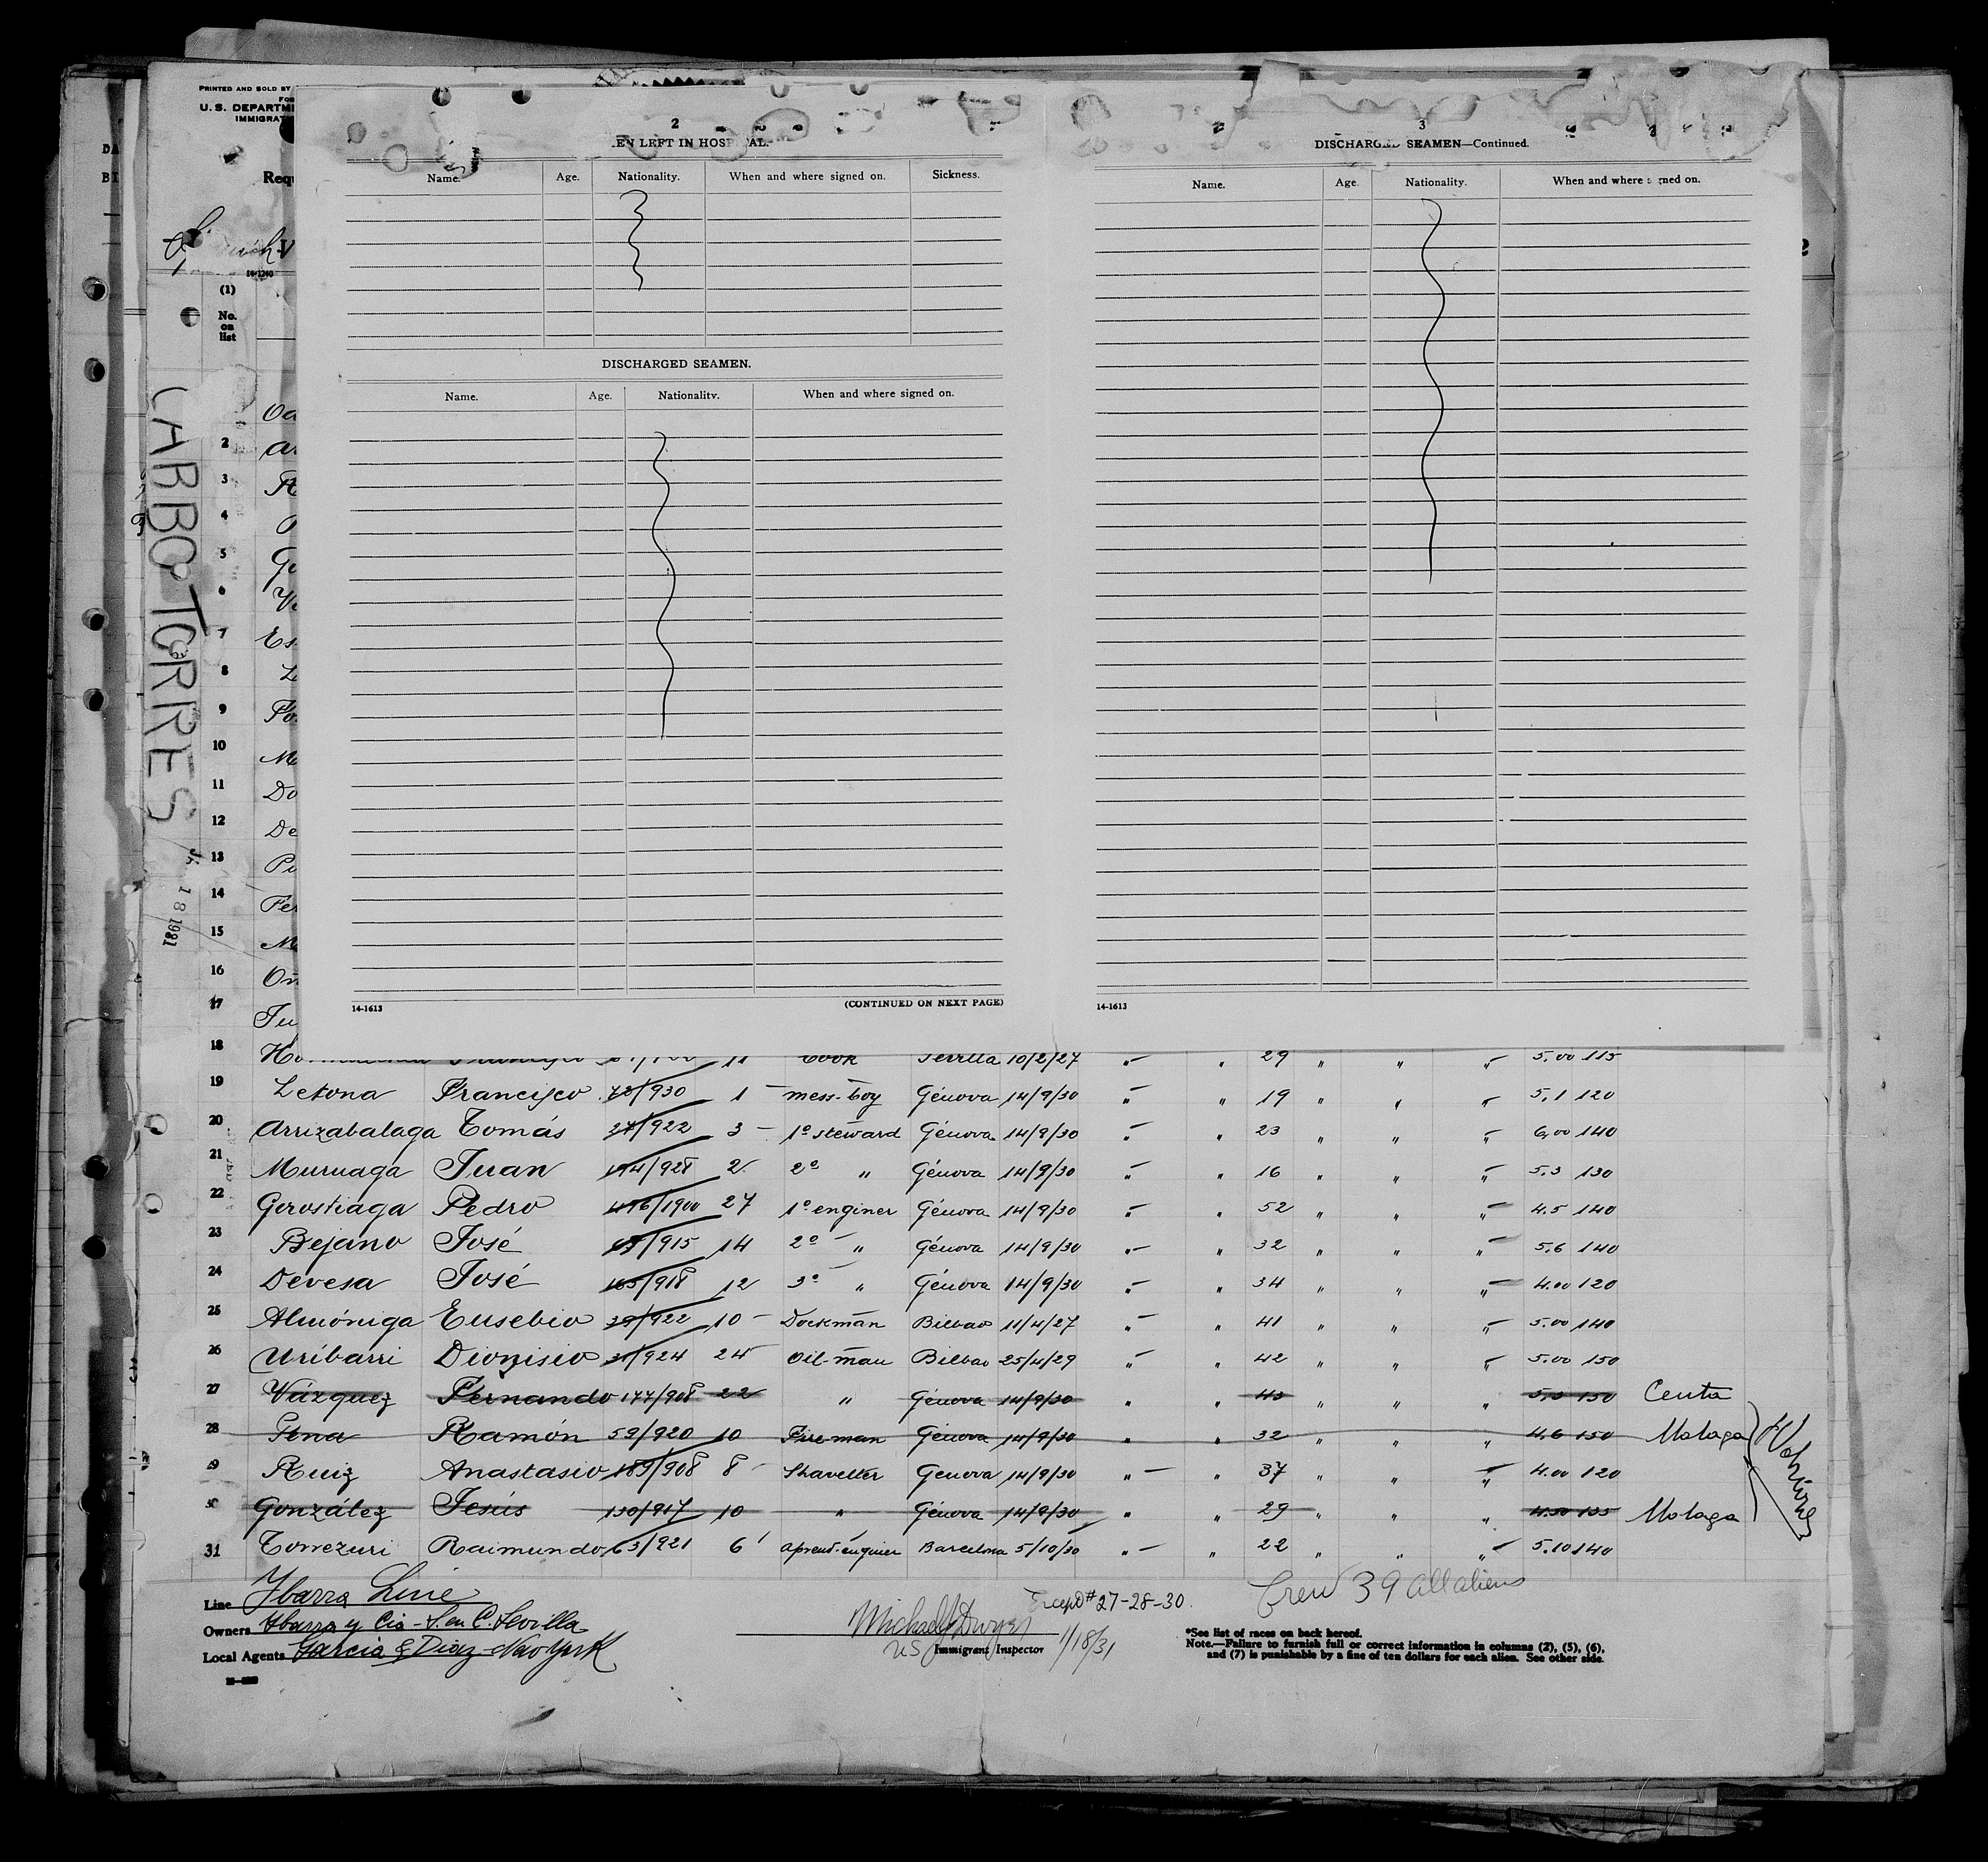 PRINTED AND SOLD BY
U. S. DEPARTM
IMMIGRAT
Requ
14-1240
(1)
No.
on
list
CABBO TORRES
2
EN LEFT IN HOSP AL.
Name. Age. Nationality. When and where signed on. Sickness.
DISCHARGED SEAMEN.
Name. Age. Nationality. When and where signed on.
14-1613 (CONTINUED ON NEXT PAGE)
3
DISCHARGED SEAMEN—Continued.
Name. Age. Nationality. When and where signed on.
14-1613
2
3
4
5
6
7 Es
8
9 Po
10
11 Do
12 De
13
14 Fer
15
16
17 Ju
18 Cook Sevilla 10/2/27 " " 29 " " " 5.00 115
19 Letona Francisco 72/930 1 mess-boy Génova 14/9/30 " " 19 " " " 5.1 120
20 Arrizabalaga Tomás 37/922 3 1º steward Génova 14/9/30 " " 23 " " " 6,00 140
21 Muruaga Juan 194/928 2 2º " Génova 14/9/30 " " 16 " " " 5.3 130
22 Gorostiaga Pedro 1900 27 1º enginer Génova 14/9/30 " " 52 " " " 4.5 140
23 Bejano José 915 14 2º " Génova 14/9/30 " " 32 " " " 5.6 140
24 Devesa José 165/918 12 3º " Génova 14/9/30 " " 34 " " " 4.00 120
25 Almóniga Eusebio 39/922 10 Dockman Bilbao 11/4/27 " " 41 " " " 5.00 140
26 Uribarri Dionisio 31/924 24 Oil-man Bilbao 25/4/29 " " 42 " " " 5.00 150
27 Vázquez Fernando 177/908 22 " Génova 14/9/30 " " 43 " " " 5.5 150 Ceuta
28 Pena Ramón 59/920 10 Fire-man Génova 14/9/30 " " 32 " " " 4.6 150 Malaga
29 Ruiz Anastasio 189/908 8 Shavelter Genova 14/9/30 " " 37 " " " 4.00 120
30 González Jesús 130/917 10 " Génova 14/9/30 " " 29 " " " 4.50 135 Malaga
31 Torrezuri Raimundo 63/921 6 aprent-enginer Barcelona 5/10/30 " " 22 " " " 5.10 140
Line Ybarra Line
Owners Ybarra y Cia - S. en C. Sevilla
Local Agents Garcia & Diaz - New York
Michael J Dwyer
US Immigrant Inspector 1/18/31
Except # 27-28-30.
Crew 39 all aliens
*See list of races on back hereof.
Note.—Failure to furnish full or correct information in columns (2), (5), (6),
and (7) is punishable by a fine of ten dollars for each alien. See other side.